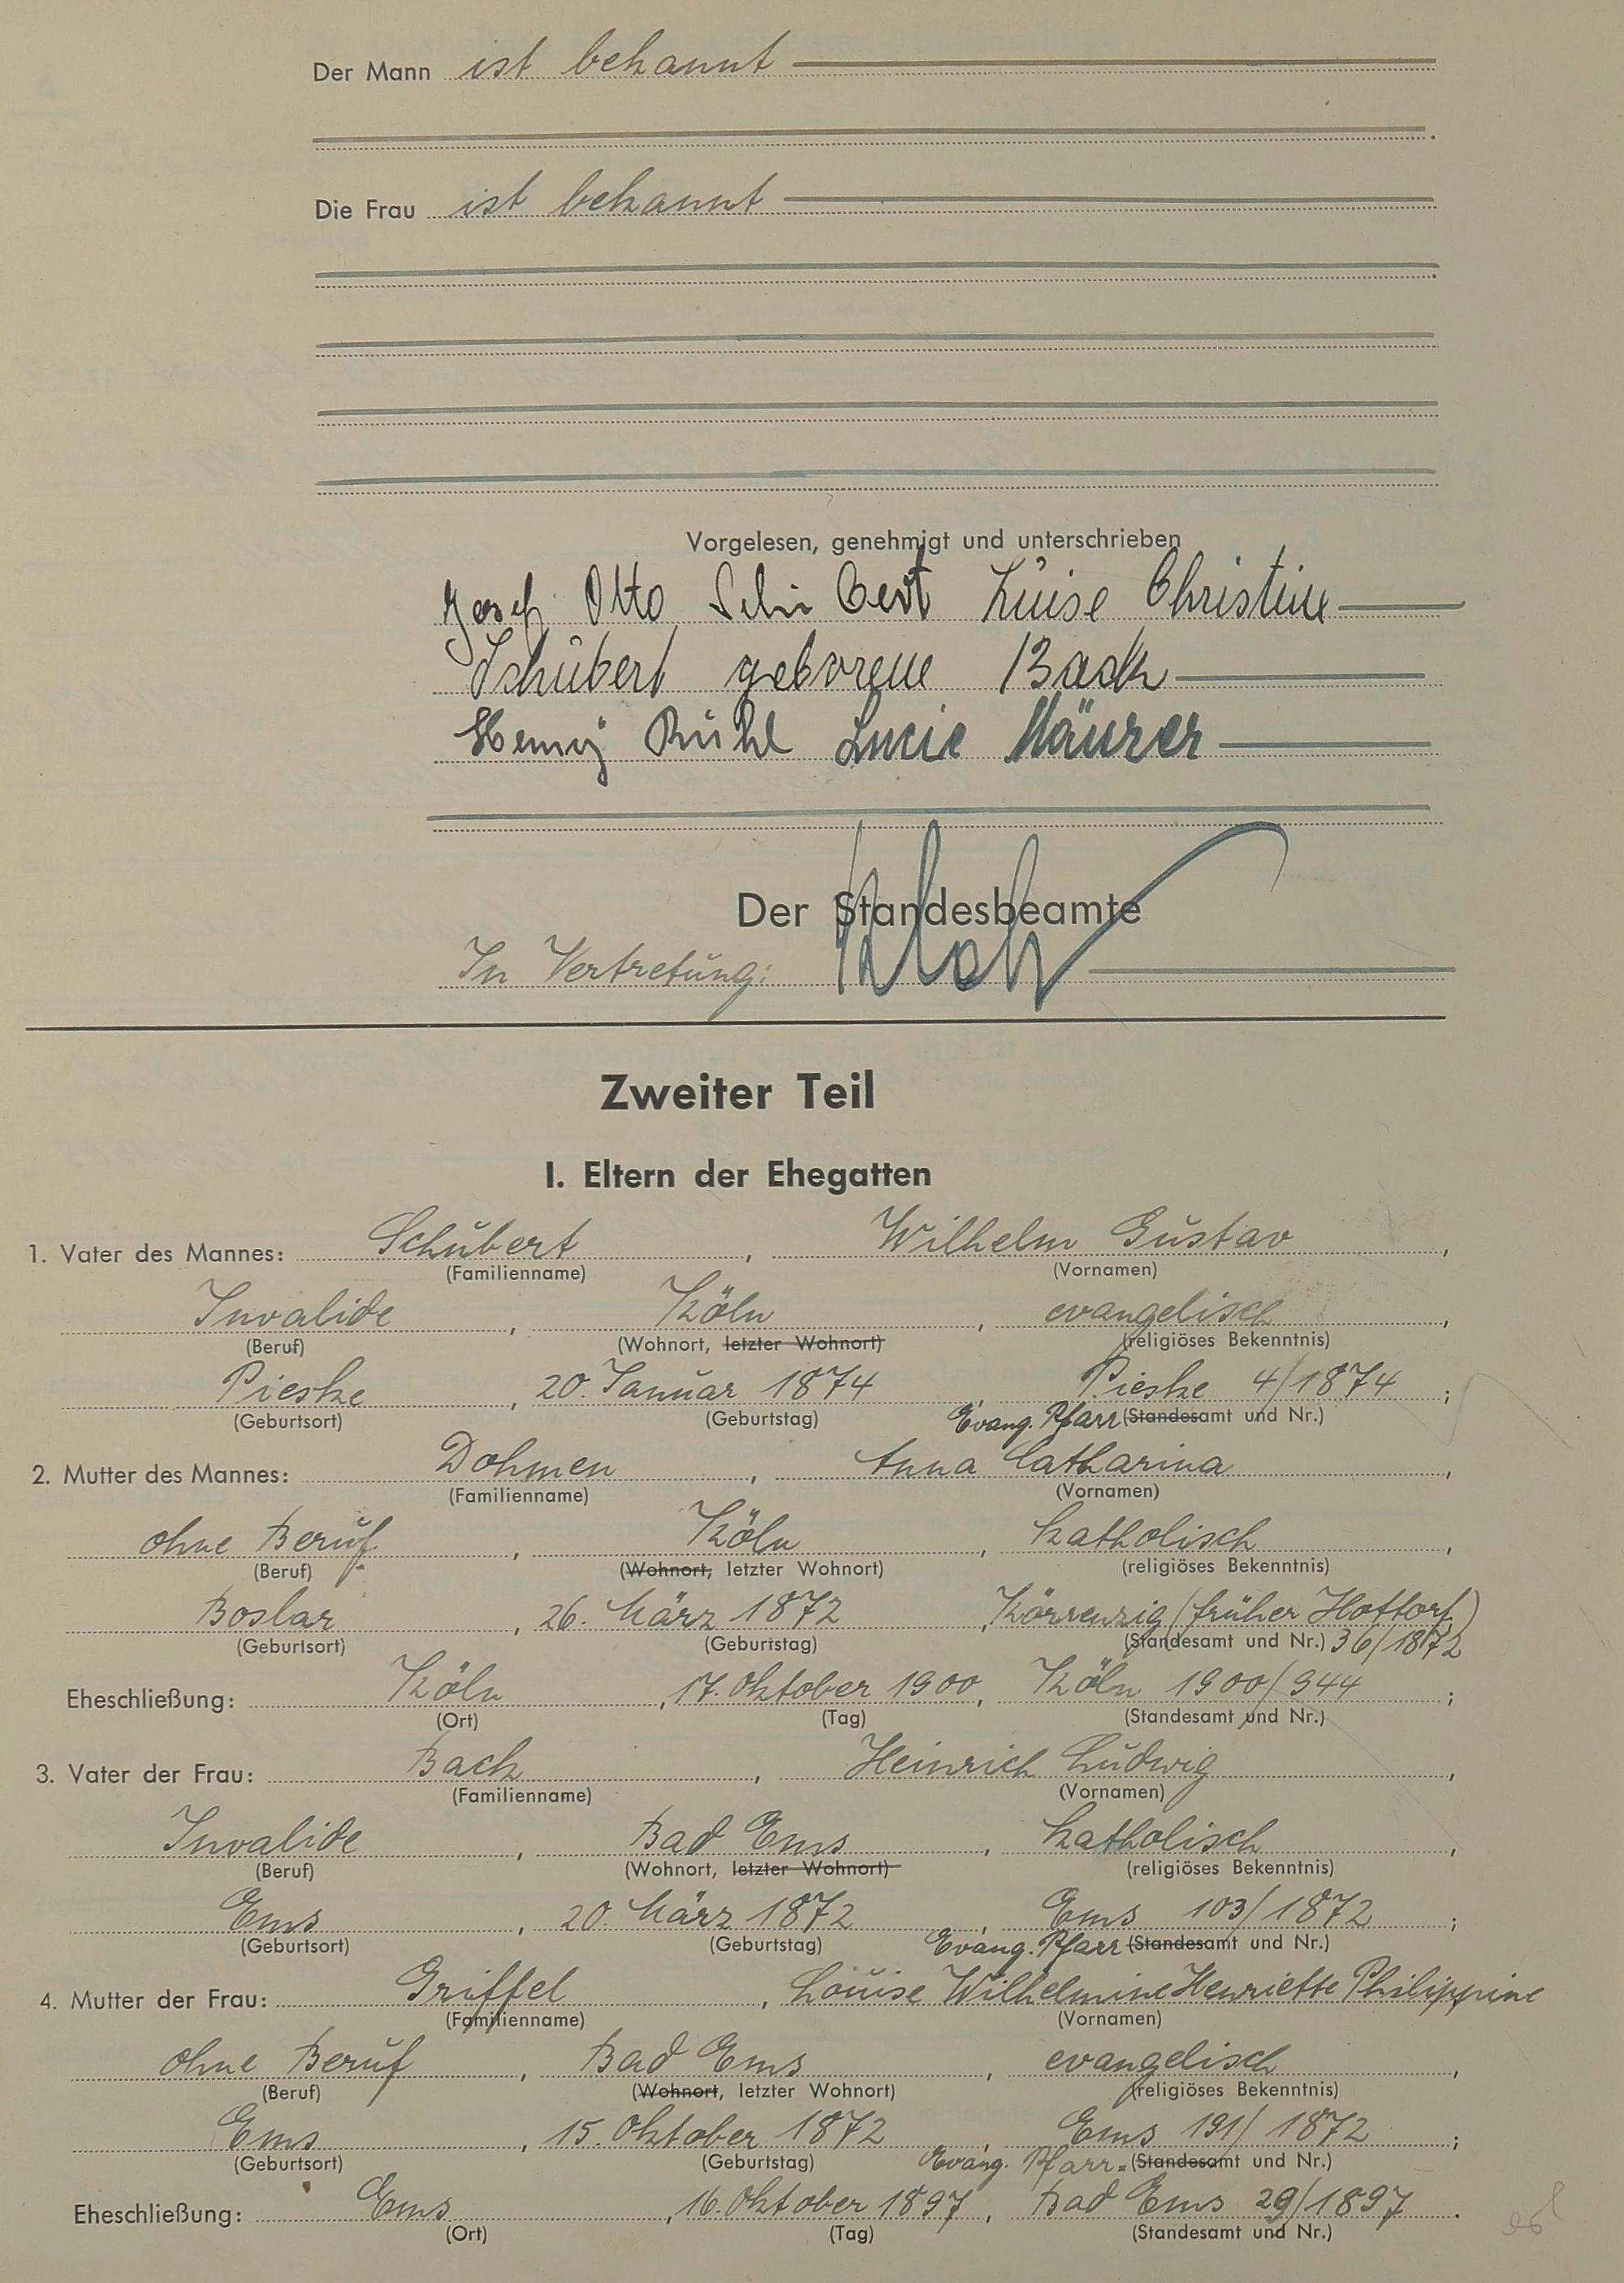 Der Mann ist bekannt
Die Frau ist bekannt
Vorgelesen, genehmigt und unterschrieben
Josef Otto Schubert Luise Christine
Schubert geborene Back
Henny Rühl Lucie Mäurer
Der Standesbeamte
In Vertretung:
Zweiter Teil
I. Eltern der Ehegatten
1. Vater des Mannes: Schubert, Wilhelm Gustav,
(Familienname) (Vornamen)
Invalide, Köln, evangelisch,
(Beruf) (Wohnort, letzter Wohnort) (religiöses Bekenntnis)
Pieske, 20. Januar 1874, Pieske 4/1874;
(Geburtsort) (Geburtstag) Evang. Pfarr (Standesamt und Nr.)
2. Mutter des Mannes: Dohmen, Anna Catharina,
(Familienname) (Vornamen)
ohne Beruf, Köln, katholisch,
(Beruf) (Wohnort, letzter Wohnort) (religiöses Bekenntnis)
Boslar, 26. März 1872, Körrenzig (früher Hottorf)
(Geburtsort) (Geburtstag) (Standesamt und Nr.) 36/1872
Eheschließung: Köln, 17. Oktober 1900, Köln 1900/944;
(Ort) (Tag) (Standesamt und Nr.)
3. Vater der Frau: Back, Heinrich Ludwig,
(Familienname) (Vornamen)
Invalide, Bad Ems, katholisch,
(Beruf) (Wohnort, letzter Wohnort) (religiöses Bekenntnis)
Ems, 20. März 1872, Ems 103/1872;
(Geburtsort) (Geburtstag) Evang. Pfarr (Standesamt und Nr.)
4. Mutter der Frau: Griffel, Louise Wilhelmine Henriette Philippine
(Familienname) (Vornamen)
ohne Beruf, Bad Ems, evangelisch,
(Beruf) (Wohnort, letzter Wohnort) (religiöses Bekenntnis)
Ems, 15. Oktober 1872, Ems 191/1872;
(Geburtsort) (Geburtstag) Evang. Pfarr- (Standesamt und Nr.)
Eheschließung: Ems, 16. Oktober 1897, Bad Ems 29/1897.
(Ort) (Tag) (Standesamt und Nr.)